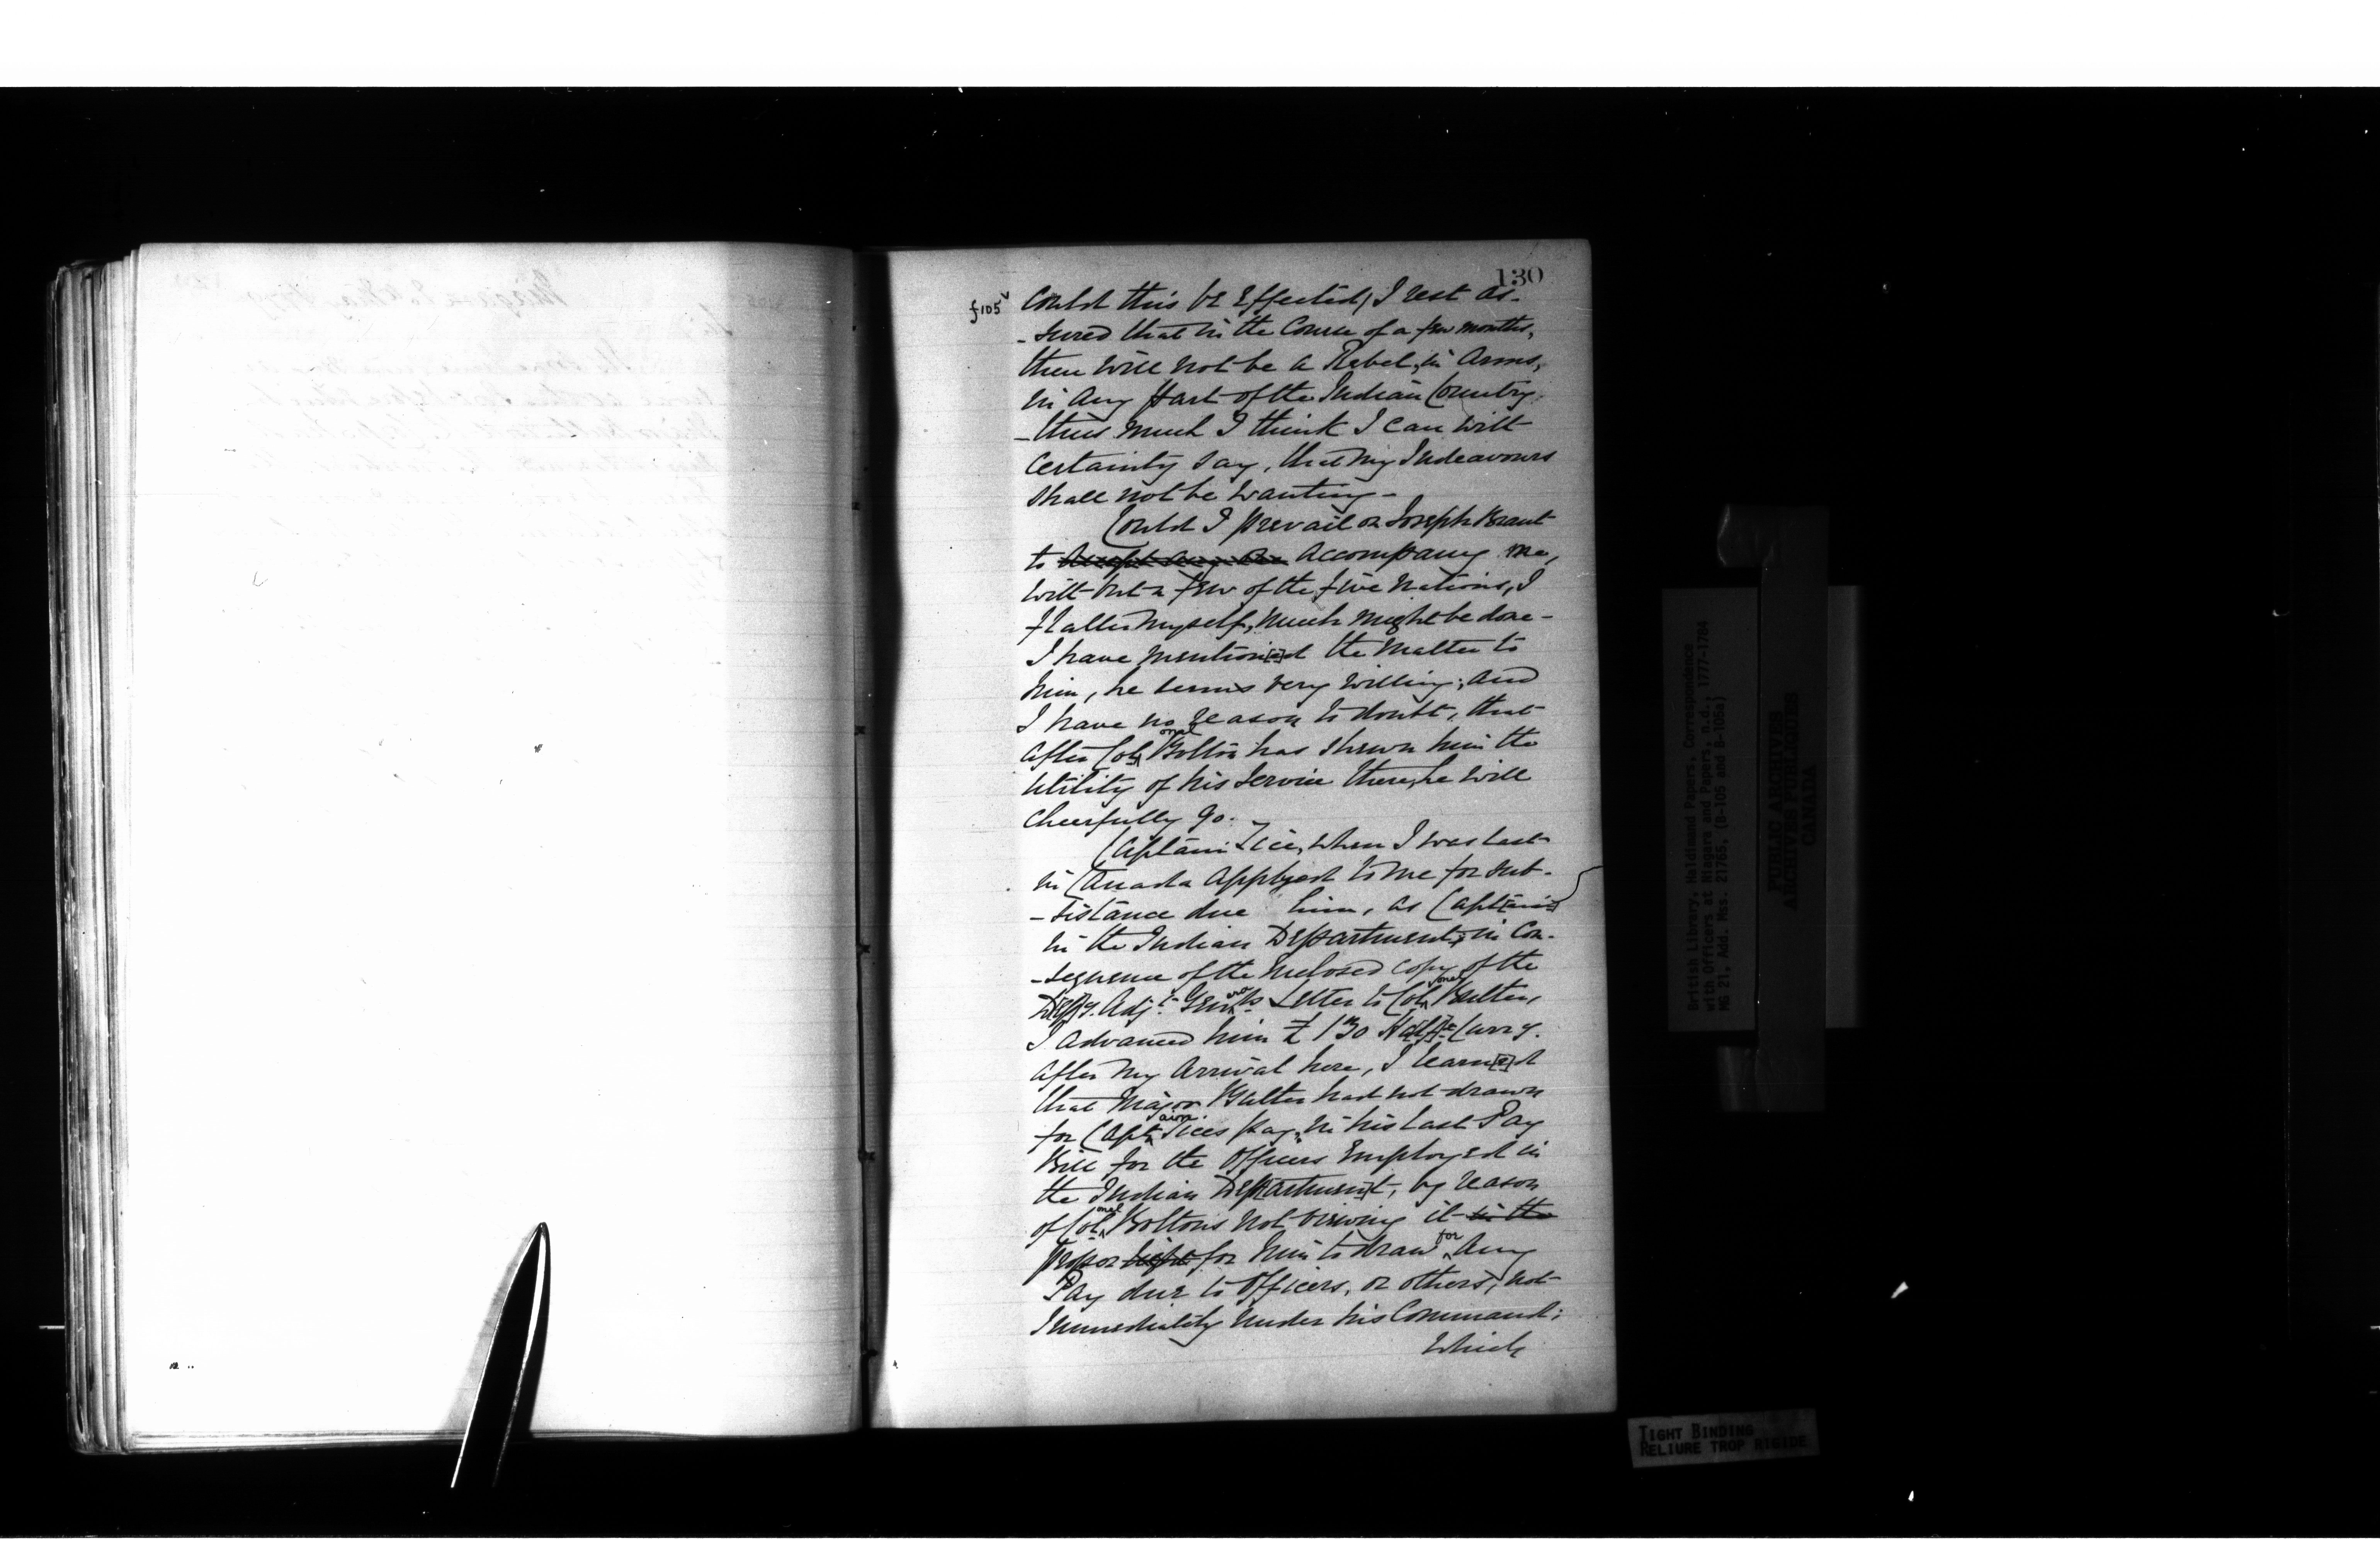 130
f105v Could this be Effected, I rest as-
-sured that in the Course of a few months,
there will not be a Rebel, in Arms,
in any part of the Indian Country
-thus much I think I can with
Certainty say, that my Indeavours
shall not be wanting-
Could I prevail on Joseph Brant
to accompany me,
with but a few of the five Nations, I
flatter myself, much might be done-
I have mention[e]d the matter to
him, he seems very willing; and
I have no reason to doubt, that
after Colonel Bolton has shewn him the
Utility of his Service there, he will
Cheerfully go.
Captain Tice, when I was last
in Canada applyed to me for sub-
-sistance due him, as Capt[ain]
in the Indian Department; in Con-
-sequence of the Inclosed copy of the
D[ep]y. Adj.t Genls Letter to Colonel Butler,
I advanced him £ 130 Hal[ifa]x Curr y.
After my Arrival here, I learn[e]d
that Major Butler had not drawn
for Captain Tices pay, in his last Pay
Bill for the Officers Employed in
the Indian Dep[artmen]t, by reason
of Colonel Boltons not viewing it in the
proper light for him to draw for any
Pay due to Officers, or others, not
Immediately under his Command;
Which
British Library, Haldimand Papers, Correspondence
with Officers at Niagara and Papers, n.d., 1777-1784
MG 21, Add. Mss. 21765, (B-105 and B-105a)
PUBLIC ARCHIVES
ARCHIVES PUBLIQUES
CANADA
TIGHT BINDING
RELIURE TROP RIGIDE